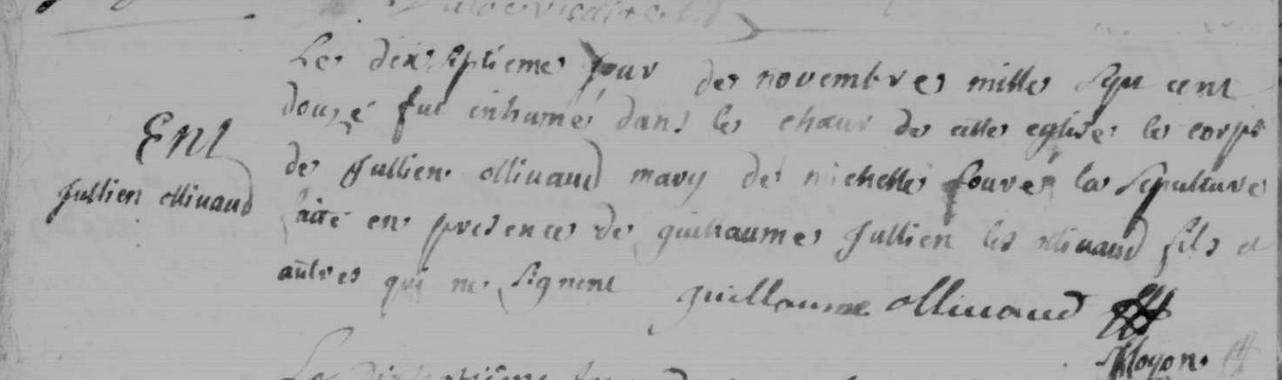 Le dixseptieme jour de novembre mille sept cent
douze fut inhumé dans le chœur de cette eglise le corps
Ent
de Jullien ollivaud mary de michelle fouré la sepulture
Jullien ollivaud
faite en presence de guillaume Jullien les ollivaud fils et
autres qui ne signent
guillaume ollivaud
Moyon